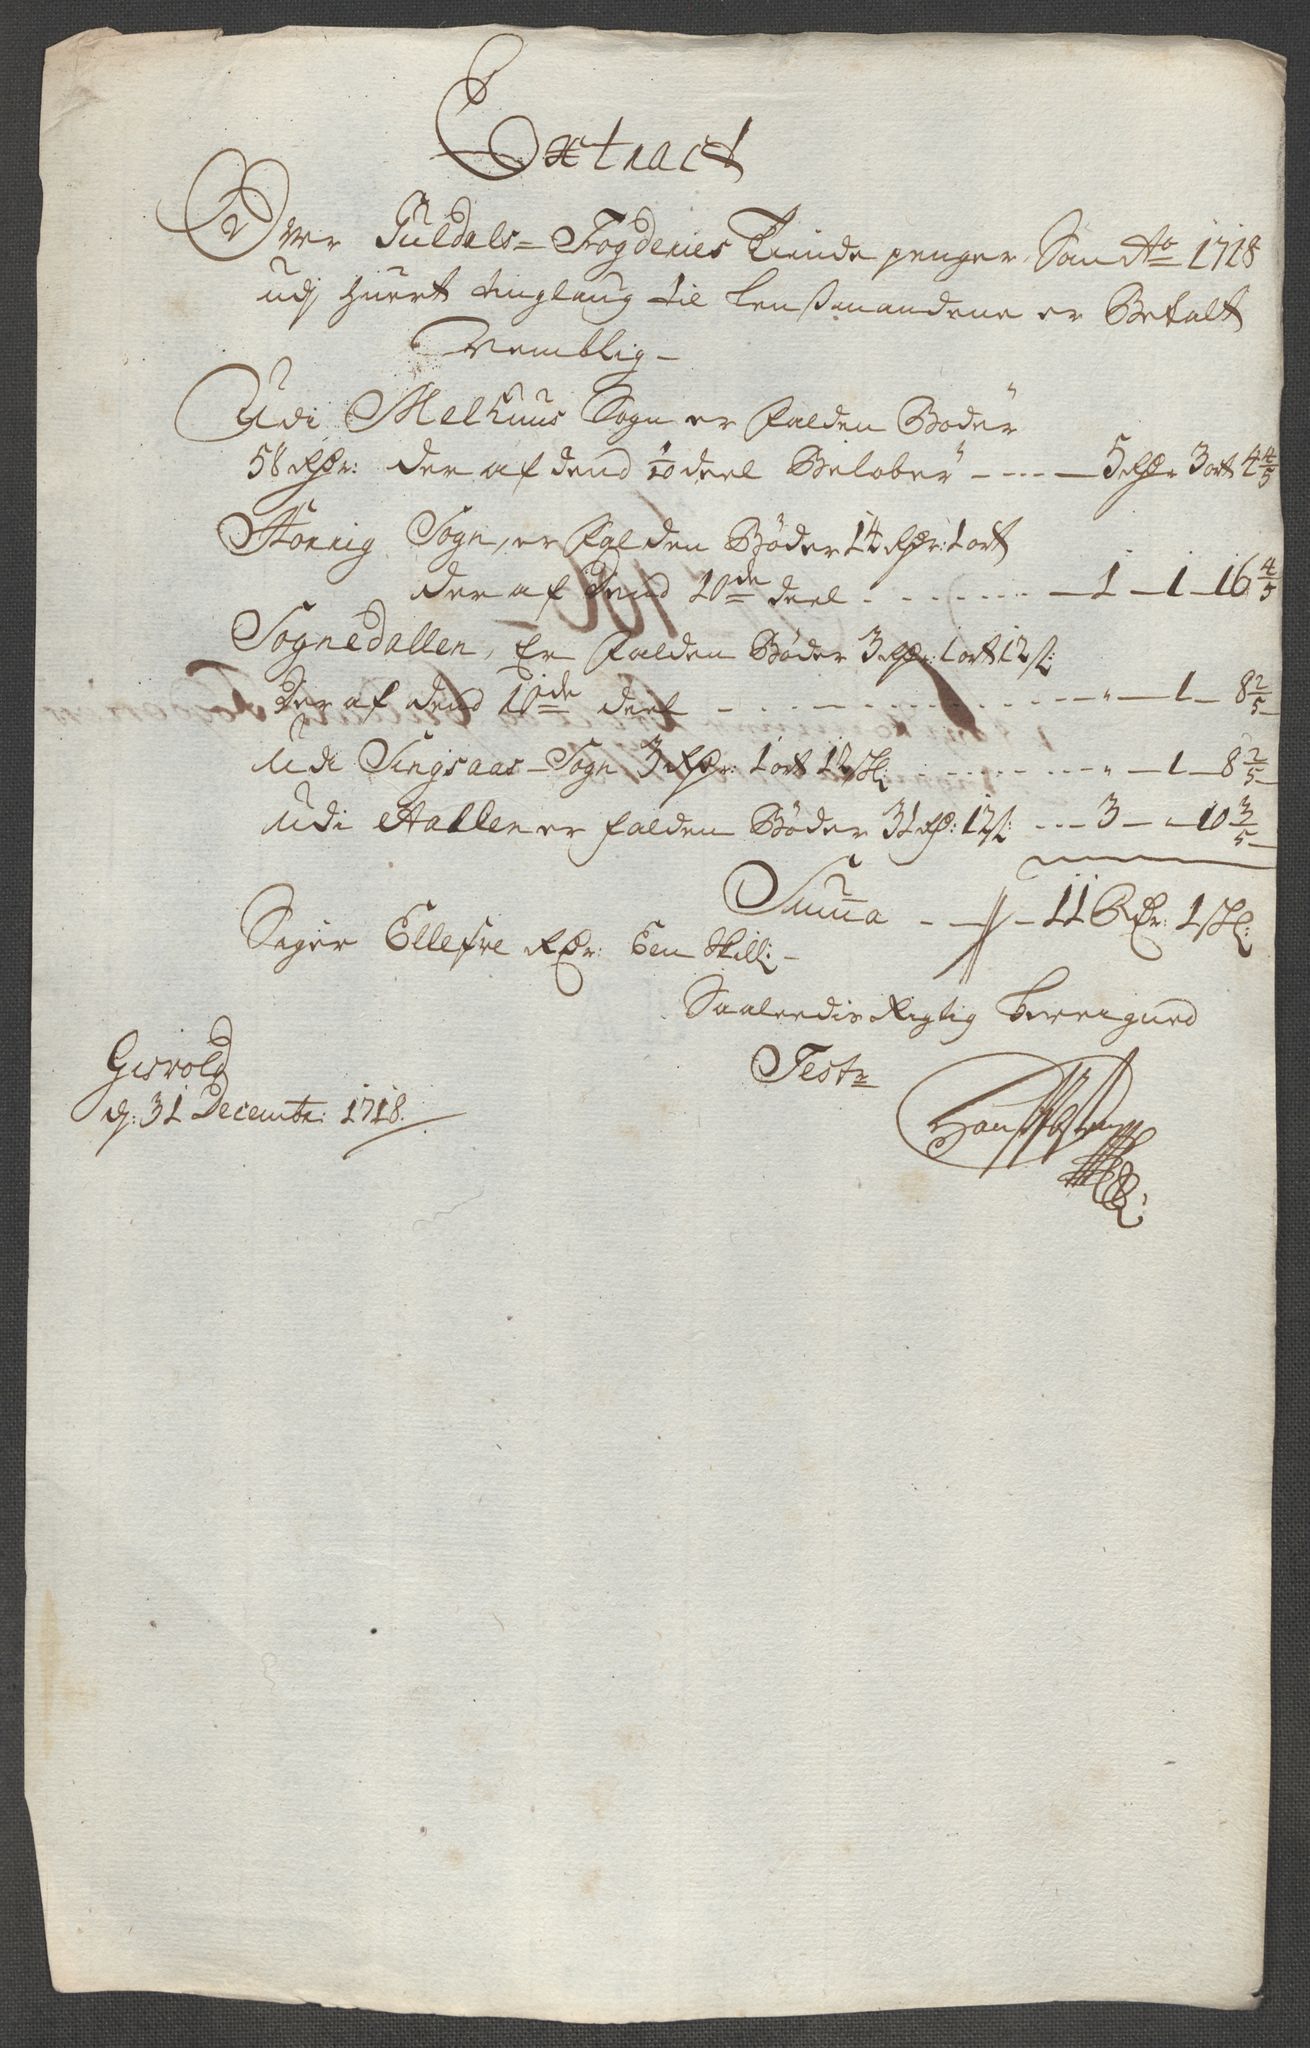 Extract
Over Guldals-Fogderies Tiende penger, Som Ao 1718
udj huert tinglaug til Lensmandene er Betalt
Nemblig-
Udi Melhuus Sogn er falden Bøder
58 Rdr: der af dend 1/10 deel Beløber - - - - 5 Rdr 3 ort 4 4/5
Størrig Sogn, er falden Bøder 14 Rdr: 1 ort
der af dend 10de deel - - - - - 1 - 1 - 16 4/5
Sognedallen, Er falden Bøder 3 Rdr: 1 ort 12 s:
Der af dend 10de deel - - - - - " - 1 - 8 2/5
Udi Singsaas-Sogn 3 Rdr: 1 ort 12 sk: - - - - - " - 1 - 8 2/5
Udi Aallen er falden Bøder 31 Rd: 12 s: - - - 3 - " - 10 3/5
Summa - - 11 Rdr: 1 sk:
Siger Ellefve Rdr: Een Skill: -
Saaledis Rigtig
Test
Gisvold
d: 31 Decembr: 1718.